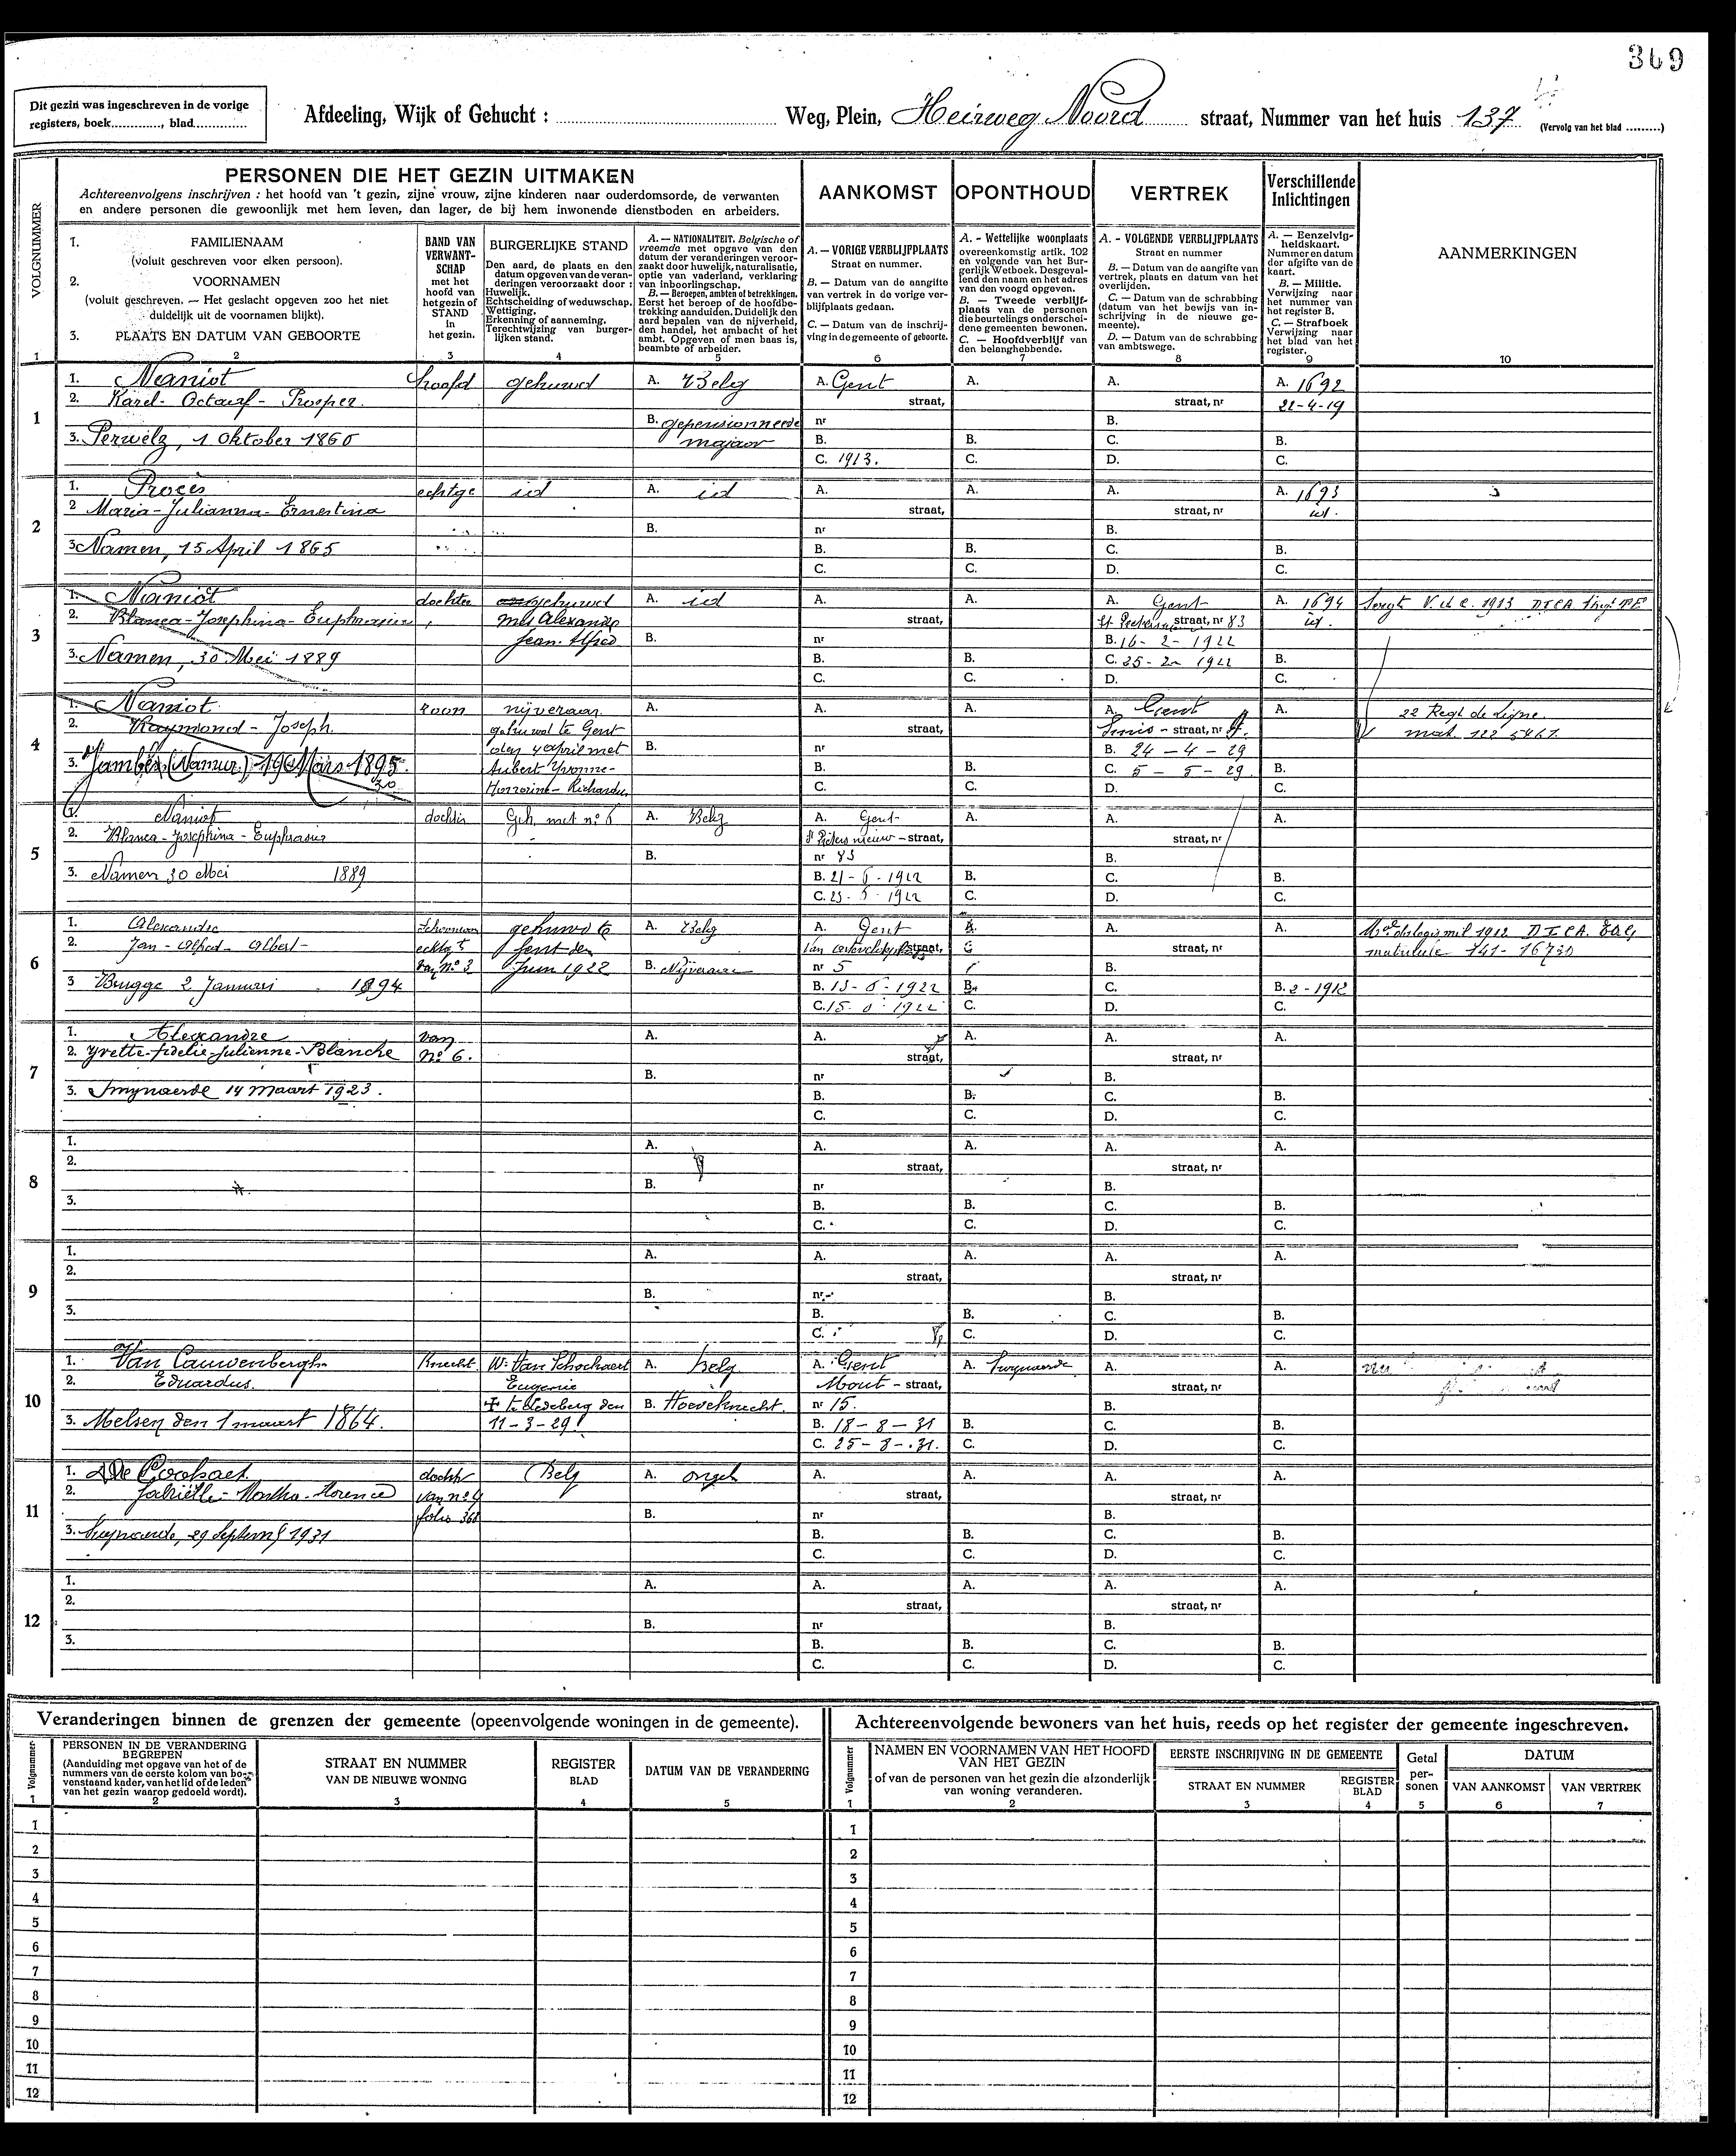 369
Dit gezin was ingeschreven in de vorige
registers, boek............, blad.............
Afdeeling, Wijk of Gehucht : Weg, Plein, Heirweg Noord straat, Nummer van het huis 137 (Vervolg van het blad .........)
PERSONEN DIE HET GEZIN UITMAKEN
Achtereenvolgens inschrijven : het hoofd van 't gezin, zijne vrouw, zijne kinderen naar ouderdomsorde, de verwanten
en andere personen die gewoonlijk met hem leven, dan lager, de bij hem inwonende dienstboden en arbeiders.
AANKOMST
OPONTHOUD
VERTREK
Verschillende
Inlichtingen
VOLGNUMMER
1. FAMILIENAAM
(voluit geschreven voor elken persoon).
2. VOORNAMEN
(voluit geschreven. — Het geslacht opgeven zoo het niet
duidelijk uit de voornamen blijkt).
3. PLAATS EN DATUM VAN GEBOORTE
BAND VAN
VERWANT-
SCHAP
met het
hoofd van
het gezin of
STAND
in
het gezin.
BURGERLIJKE STAND
Den aard, de plaats en den
datum opgeven van de veran-
deringen veroorzaakt door :
Huwelijk.
Echtscheiding of weduwschap.
Wettiging.
Erkenning of aanneming.
Terechtwijzing van burger-
lijken stand.
A. — NATIONALITEIT. Belgische of
vreemde met opgave van den
datum der veranderingen veroor-
zaakt door huwelijk, naturalisatie,
optie van vaderland, verklaring
van inboorlingschap.
B. — Beroepen, ambten of betrekkingen.
Eerst het beroep of de hoofdbe-
trekking aanduiden. Duidelijk den
aard bepalen van de nijverheid,
den handel, het ambacht of het
ambt. Opgeven of men baas is,
beambte of arbeider.
A. — VORIGE VERBLIJFPLAATS
Straat en nummer.
B. — Datum van de aangifte
van vertrek in de vorige ver-
blijfplaats gedaan.
C. — Datum van de inschrij-
ving in de gemeente of geboorte.
A. - Wettelijke woonplaats
overeenkomstig artik. 102
en volgende van het Bur-
gerlijk Wetboek. Desgeval-
lend den naam en het adres
van den voogd opgeven.
B. — Tweede verblijf-
plaats van de personen
die beurtelings onderschei-
dene gemeenten bewonen.
C. — Hoofdverblijf van
den belanghebbende.
A. - VOLGENDE VERBLIJFPLAATS
Straat en nummer
B. — Datum van de aangifte van
vertrek, plaats en datum van het
overlijden.
C. — Datum van de schrabbing
(datum van het bewijs van in-
schrijving in de nieuwe ge-
meente).
D. — Datum van de schrabbing
van ambtswege.
A. — Eenzelvig-
heidskaart.
Nummer en datum
der afgifte van de
kaart.
B. — Militie.
Verwijzing naar
het nummer van
het register B.
C. — Strafboek
Verwijzing naar
het blad van het
register.
AANMERKINGEN
1 2 3 4 5 6 7 8 9 10
1
1. Naniot hoofd gehuwd A. Belg A. Gent A. A. A. 1692
2. Karel - Octaaf - Prosper straat, straat, nr 22-4-19
B. gepensionneerde nr B.
3. Perwelz, 1 Oktober 1860 majoor B. B. C. B.
C. 1913. C. D. C.
2
1. Procès echtge id A. id A. A. A. A. 1693
2 Maria - Julianna - Ernestina straat, straat, nr id.
B. nr B.
3 Namen, 15 April 1865 B. B. C. B.
C. C. D. C.
3
1. Naniot dochter gehuwd A. id A. A. A. Gent A. 1694 1913
2. Blanca - Josephina - Euphrasie met Alexandre straat, straat, nr 83 id.
Jean Alfred B. nr B. 16 - 2 - 1922
3. Namen, 30 Mei 1889 B. B. C. 25 - 2 - 1922 B.
C. C. D. C.
4
1. Naniot zoon nijveraar A. A. A. A. Gent A. 22 Regt de Ligne
2. Raymond - Joseph. gehuwd te Gent straat, straat, nr
den 4 april met B. nr B. 24 - 4 - 29
3. Jambes (Namur), 19 Mars 1895. Aubert Yvonne - B. B. C. 5 - 5 - 29 B.
30 C. C. D. C.
5
1. Naniot dochter Geh. met n° 6 A. Belg A. Gent A. A. A.
2. Blanca - Josephina - Euphrasie St Pieters nieuw - straat, straat, nr
B. nr 83 B.
3. Namen 30 Mei 1889 B. 21 - 6 - 1922 B. C. B.
C. C. D. C.
6
1. Alexandre Schoonzoon gehuwd te A. Belg A. Gent A. A. A. 1912
2. Jan - Alfred - Albert - Gent den straat, straat, nr
van n° 3 Juni 1922 B. Nijveraar nr 5 B.
3 Brugge 2 Januari 1894 B. 13 - 6 - 1922 B. C. B. 2 - 1912
C. 15 - 6 - 1922 C. D. C.
7
1. Alexandre van A. A. A. A. A.
2. Yvette - fidelie - Julienne - Blanche N° 6. straat, straat, nr
B. nr B.
3. Swynaerde 14 Maart 1923. B. B. C. B.
C. C. D. C.
8
1. A. A. A. A. A.
2. straat, straat, nr
B. nr B.
3. B. B. C. B.
C. C. D. C.
9
1. A. A. A. A. A.
2. straat, straat, nr
B. nr B.
3. B. B. C. B.
C. C. D. C.
10
1. Van Cauwenbergh Knecht W. Van Schochaert A. belg A. Gent A. Swynaerde A. A.
2. Eduardus. Eugenie Mout - straat, straat, nr
te Ledeberg den B. Hoeveknecht. nr 15. B.
3. Melsen den 1 maart 1864. 11 - 3 - 29 B. 18 - 8 - 31 B. C. B.
C. 25 - 8 - 31. C. D. C.
11
1. De dochter Belg A. ongeh A. A. A. A.
2. Gabriëlle - Martha - Florence van n° 4 straat, straat, nr
folio 368 B. nr B.
3. Swynaerde, 29 September 1931 B. B. C. B.
C. C. D. C.
12
1. A. A. A. A. A.
2. straat, straat, nr
B. nr B.
3. B. B. C. B.
C. C. D. C.
Veranderingen binnen de grenzen der gemeente (opeenvolgende woningen in de gemeente).
Volgnummer
PERSONEN IN DE VERANDERING
BEGREPEN
(Aanduiding met opgave van het of de
nummers van de eerste kolom van bo-
venstaand kader, van het lid of de leden
van het gezin waarop gedoeld wordt).
STRAAT EN NUMMER
VAN DE NIEUWE WONING
REGISTER
BLAD
DATUM VAN DE VERANDERING
1 2 3 4 5
1
2
3
4
5
6
7
8
9
10
11
12
Achtereenvolgende bewoners van het huis, reeds op het register der gemeente ingeschreven.
Volgnummer
NAMEN EN VOORNAMEN VAN HET HOOFD
VAN HET GEZIN
of van de personen van het gezin die afzonderlijk
van woning veranderen.
EERSTE INSCHRIJVING IN DE GEMEENTE
STRAAT EN NUMMER
REGISTER
BLAD
Getal
per-
sonen
DATUM
VAN AANKOMST
VAN VERTREK
1 2 3 4 5 6 7
1
2
3
4
5
6
7
8
9
10
11
12